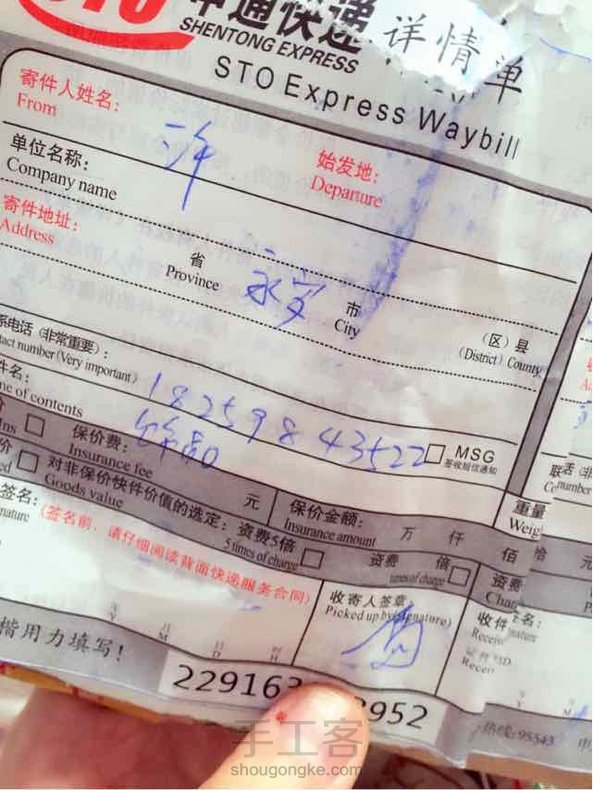 STO 申通快递 详情单
SHENTONG EXPRESS
STO Express Waybill
寄件人姓名: 许 始发地:
From Departure
单位名称:
Company name
寄件地址:
Address
省 永安 市 (区)县
Province City (District) County
系电话(非常重要):
tact number(Very important) 18259843522 MSG
签收短信通知
件名:
me of contents 饰品
保价费: 元 保价金额: 万 仟 佰 拾 元
Insurance fee Insurance amount
对非保价快件价值的选定: 资费5倍 资费 倍
Goods value 5 times of charge times of charge
重量
Weigh
资费
Char
签名: (签名前,请仔细阅读背面快递服务合同)
nature
收寄人签章 收件 名:
Picked up by(signature) Receiv nature
Y M D H
楷用力填写!
229163 3952
热线:95543
手工客
shougongke.com